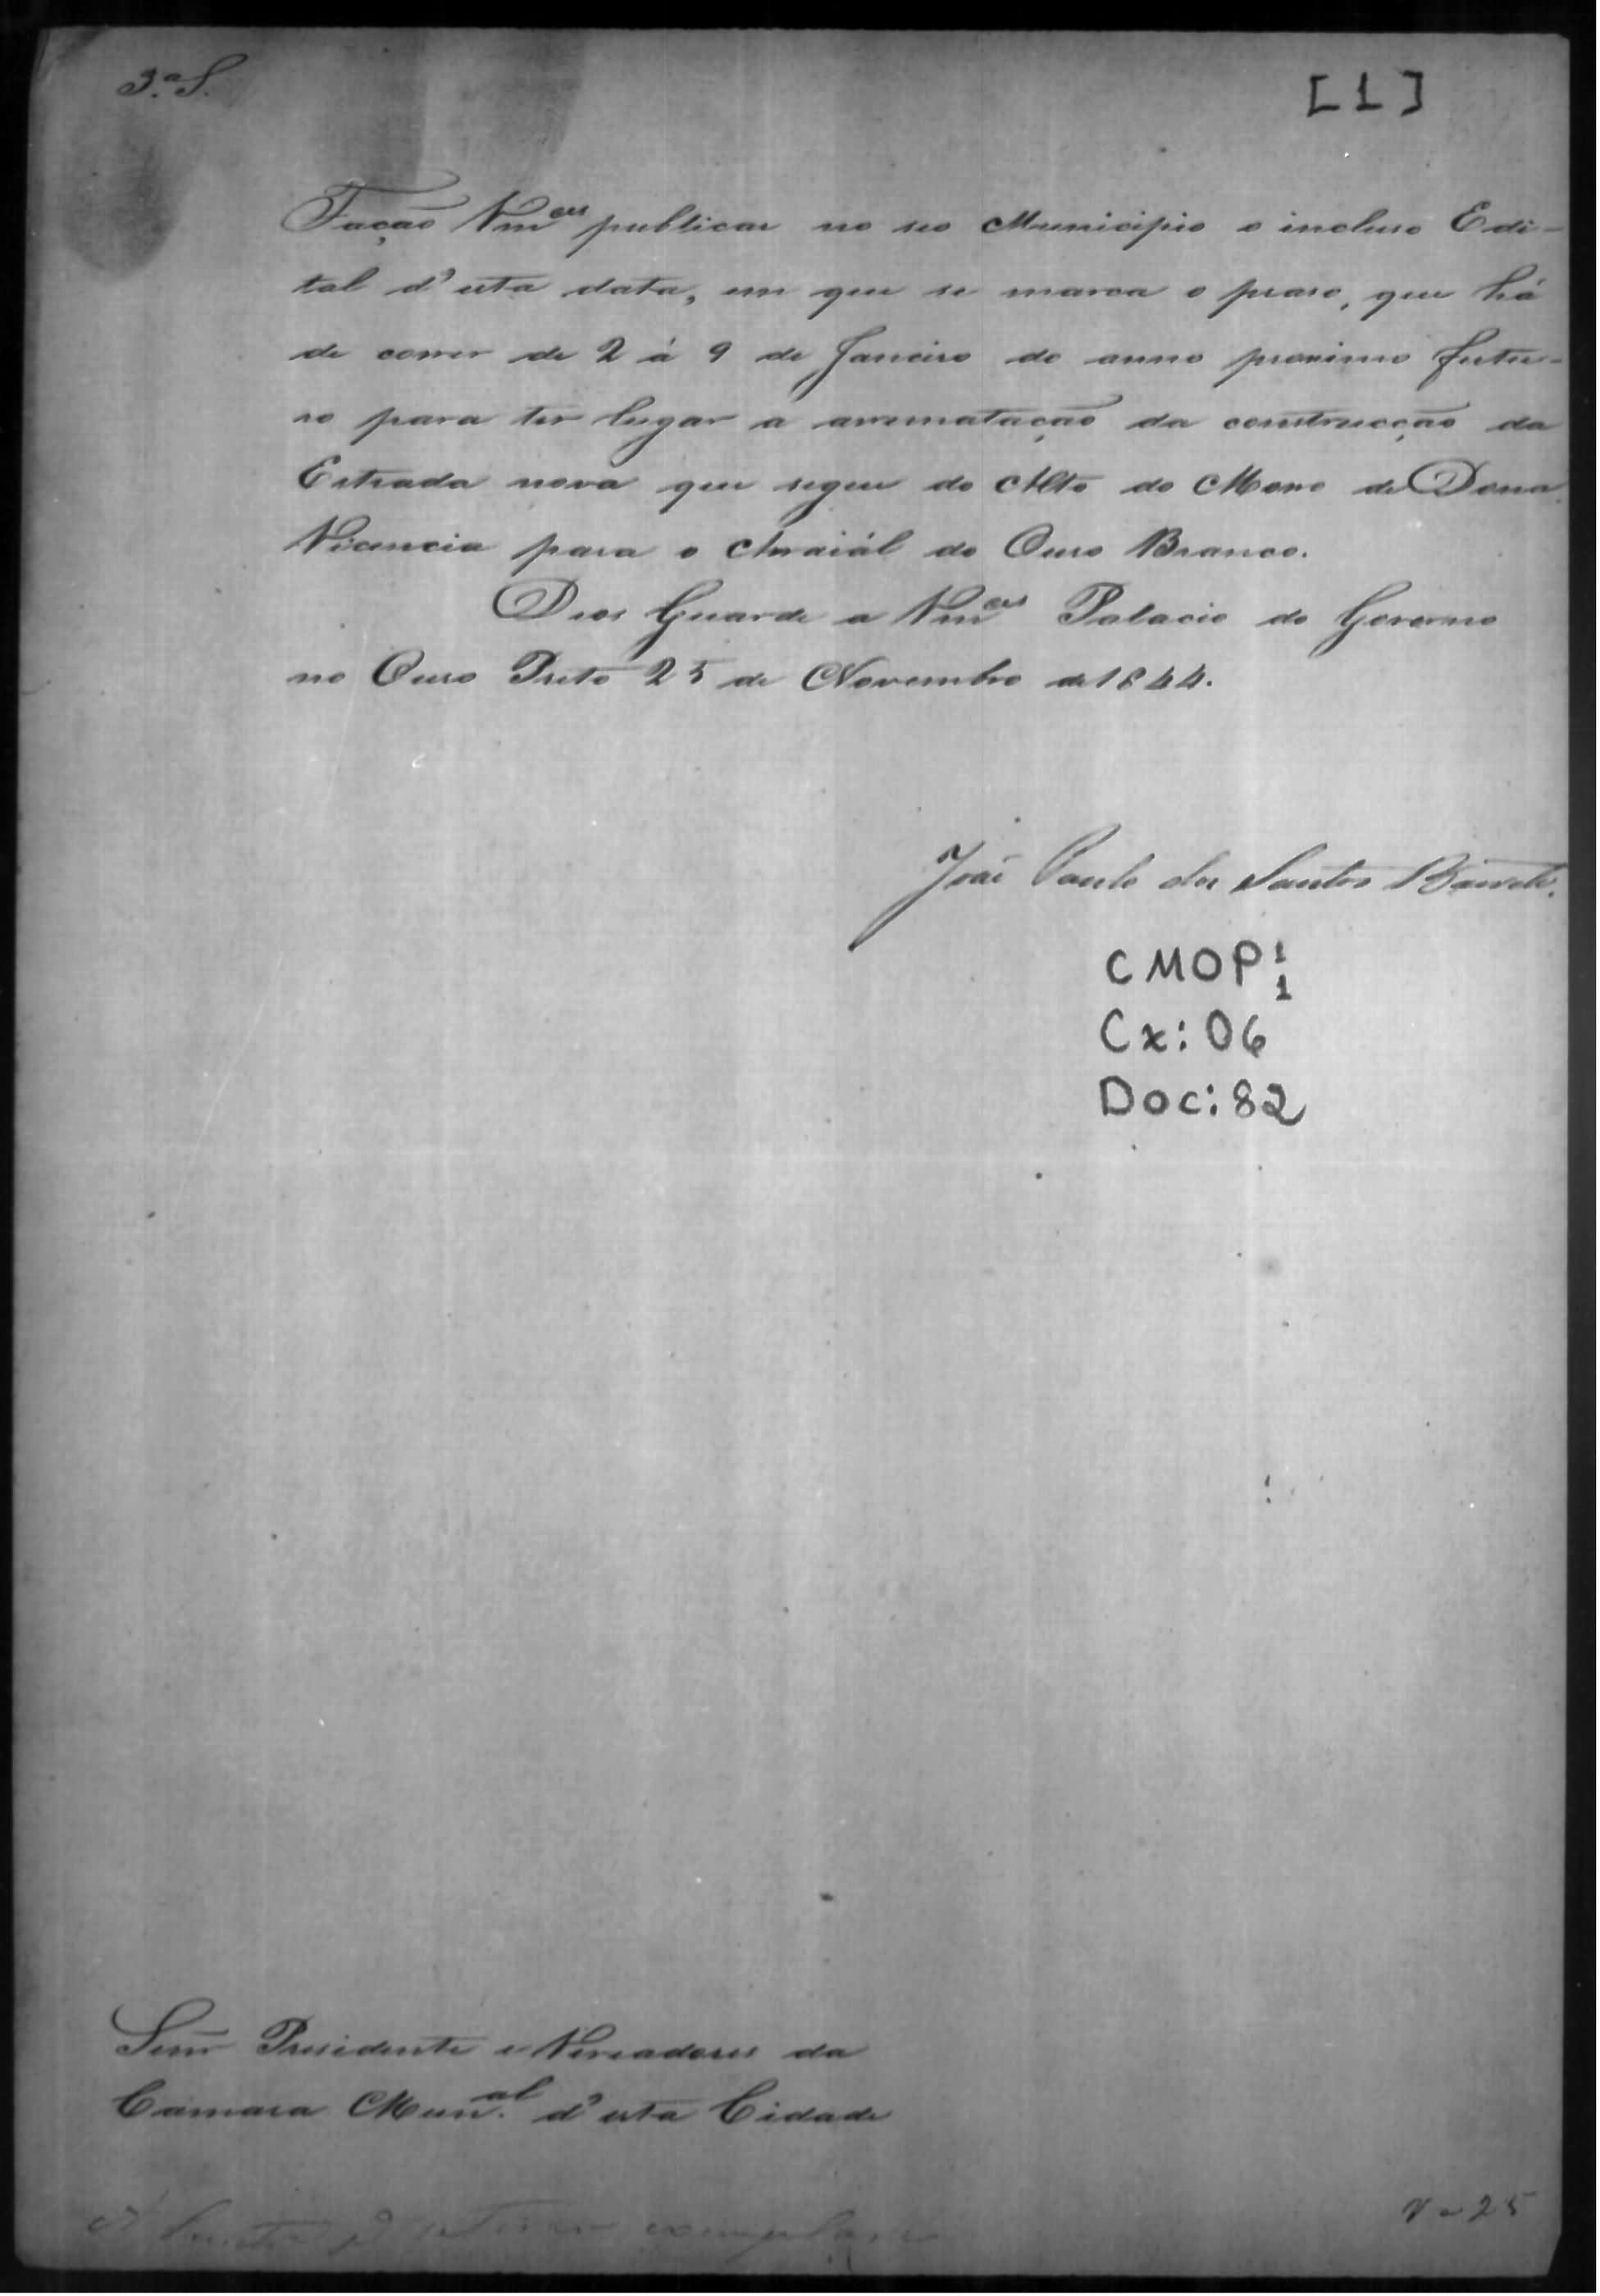 3.ª S.
[1]
Fação Vm.ces publicar no seo Municipio o incluso Edi-
tal d'esta data, em que se marca o praso, que há
de correr de 2 á 9 de Janeiro do anno proximo futu-
ro para ter lugar a arrematação da construcção da
Estrada nova que segue do Alto do Morro de Dona
Vicencia para o Arraiál do Ouro Branco.
Deos Guarde a Vm.ces Palacio do Governo
no Ouro Preto 25 de Novembro de 1844.
João Paulo dos Santos Barreto.
CMOP 1 1
Cx: 06
Doc: 82
Senr. Presidente e Vereadores da
Camara Mun.al d'esta Cidade
exemplares
25